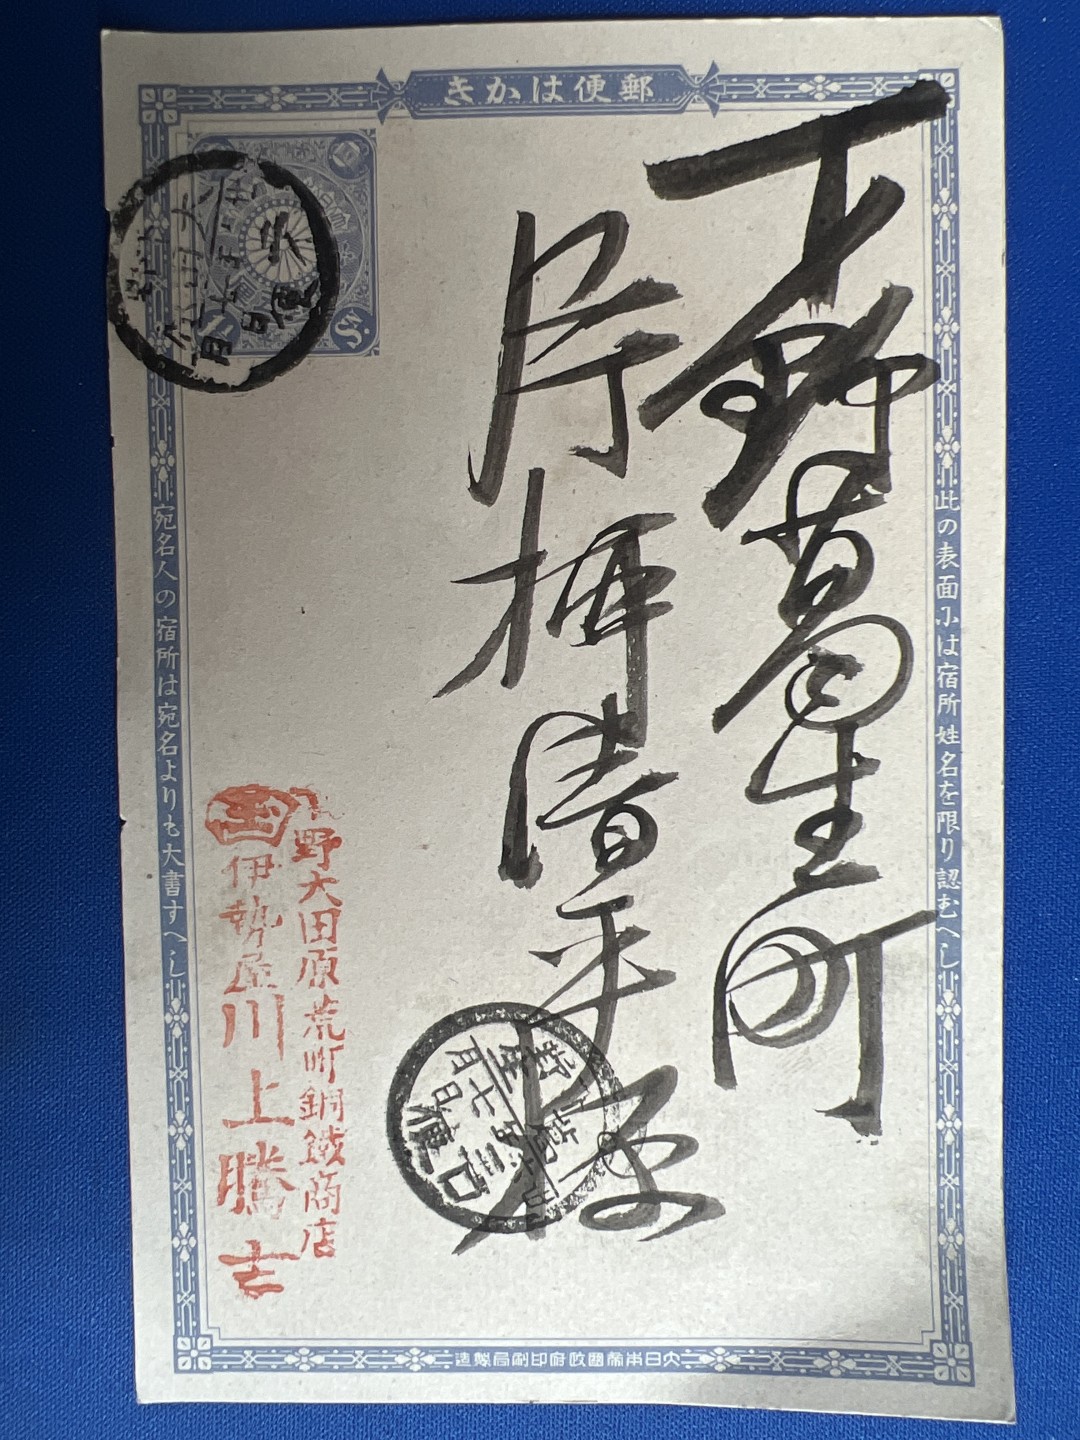 郵便はかき
此の表面には宿所姓名を限り認むへし
下野葛生町
片柳清平様
下野大田原荒町銅鐵商店
伊勢屋川上騰吉
宛名人の宿所は宛名よりも大書すへし
大日本帝國政府印刷局製造